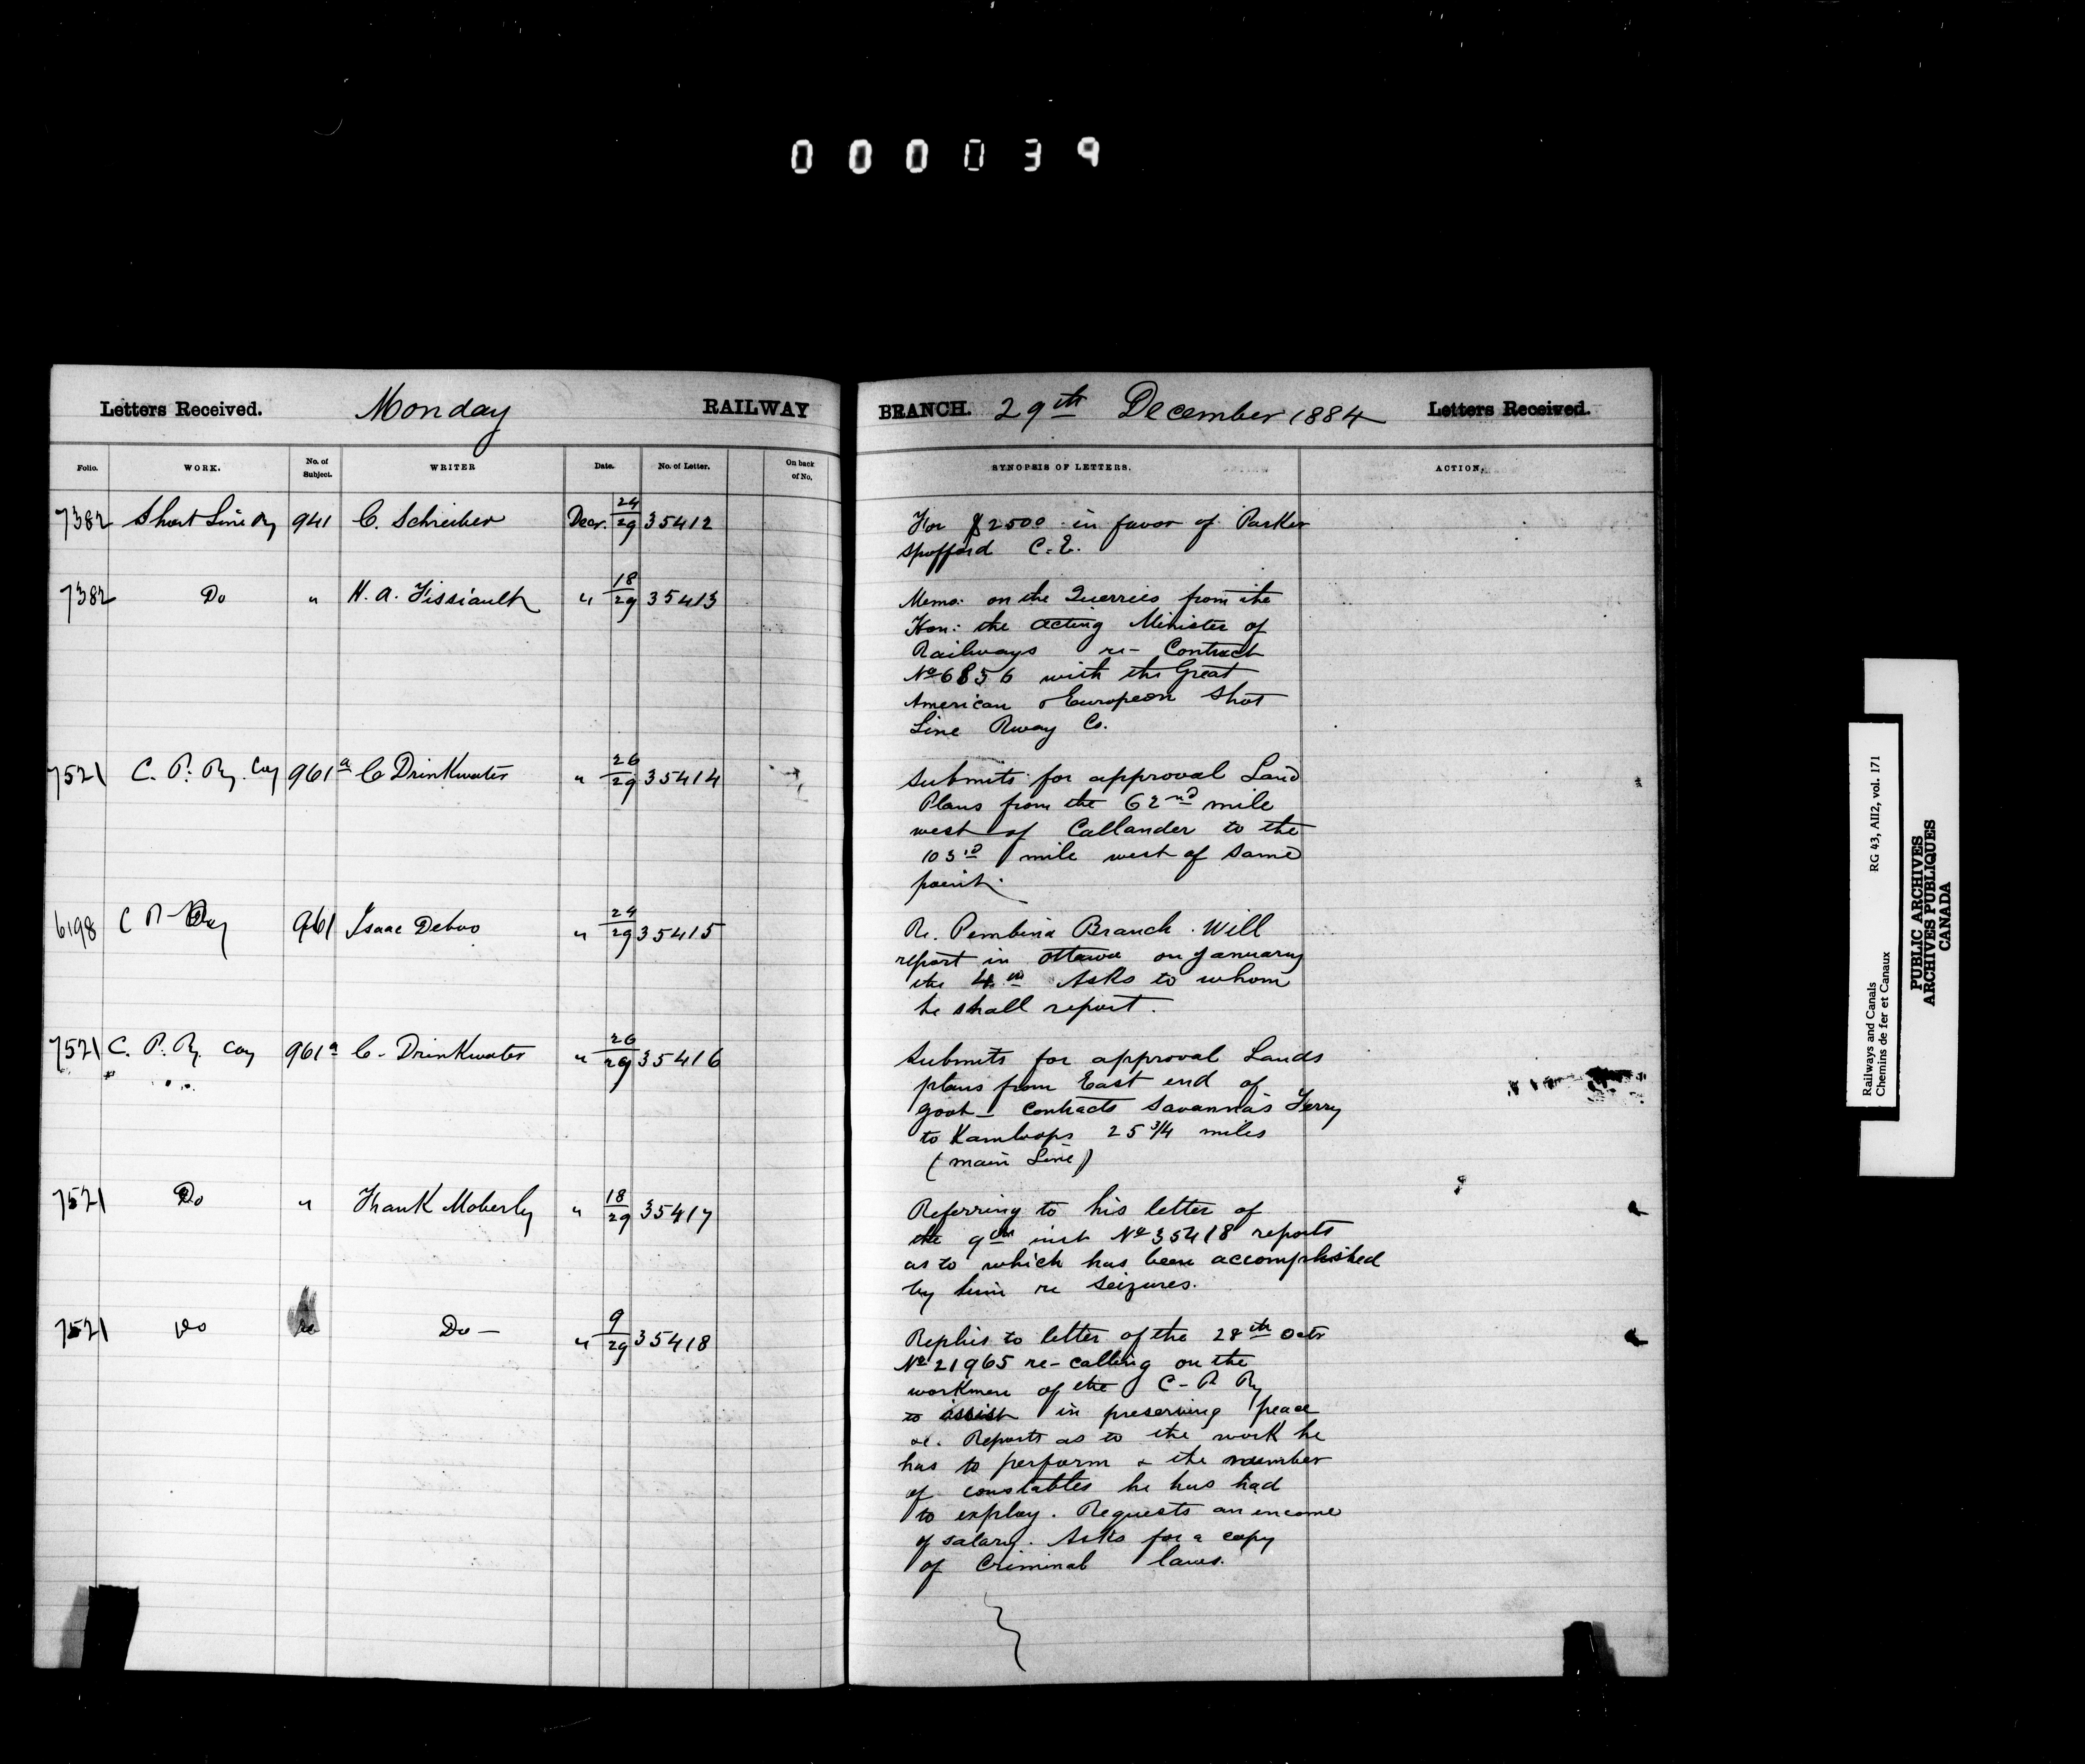 000039
Letters Received. Monday RAILWAY BRANCH. 29th December 1884 Letters Received.
Folio. WORK. No. of Subject. WRITER Date. No. of Letter. On back of No. SYNOPSIS OF LETTERS. ACTION.
7382 Short Line Ry 941 C. Schreiber Decr. 24/29 35412 For $2500 in favor of Parker
Spofford C.E.
7382 Do " H. A. Fissiault " 18/29 35413 Memo: on the Querries from the
Hon: the Acting Minister of
Railways re- Contract
No 6856 with the Great
American & European Short
Line Rway Co.
7521 C. P. Ry. Coy 961a C Drinkwater " 26/29 35414 Submits for approval Land
Plans from the 62nd mile
west of Callander to the
103rd mile west of same
point.
6198 C P Ry 961 Isaac Deboo " 24/29 35415 Re. Pembina Branch. Will
report in Ottawa on January
the 4th Asks to whom
he shall report.
7521 C. P. Ry. Coy 961a C. Drinkwater " 26/29 35416 Submits for approval Lands
plans from East end of
Govt- Contracts Savanna's Ferry
to Kamloops 25 3/4 miles
(main Line)
7521 Do " Frank Moberly " 18/29 35417 Referring to his letter of
the 9th inst No 35418 reports
as to which has been accomplished
by him re Seizures.
7521 Do Do- " 9/29 35418 Replies to letter of the 28th Octr
No 21965 re-calling on the
workmen of the C-P Ry
to assist in preserving peace
&c. Reports as to the work he
has to perform & the number
of constables he has had
to exploy. Requests an encome
of salary. Asks for a copy
of Criminal laws.
Railways and Canals RG 43, AII2, vol. 171
Chemins de fer et Canaux
PUBLIC ARCHIVES
ARCHIVES PUBLIQUES
CANADA